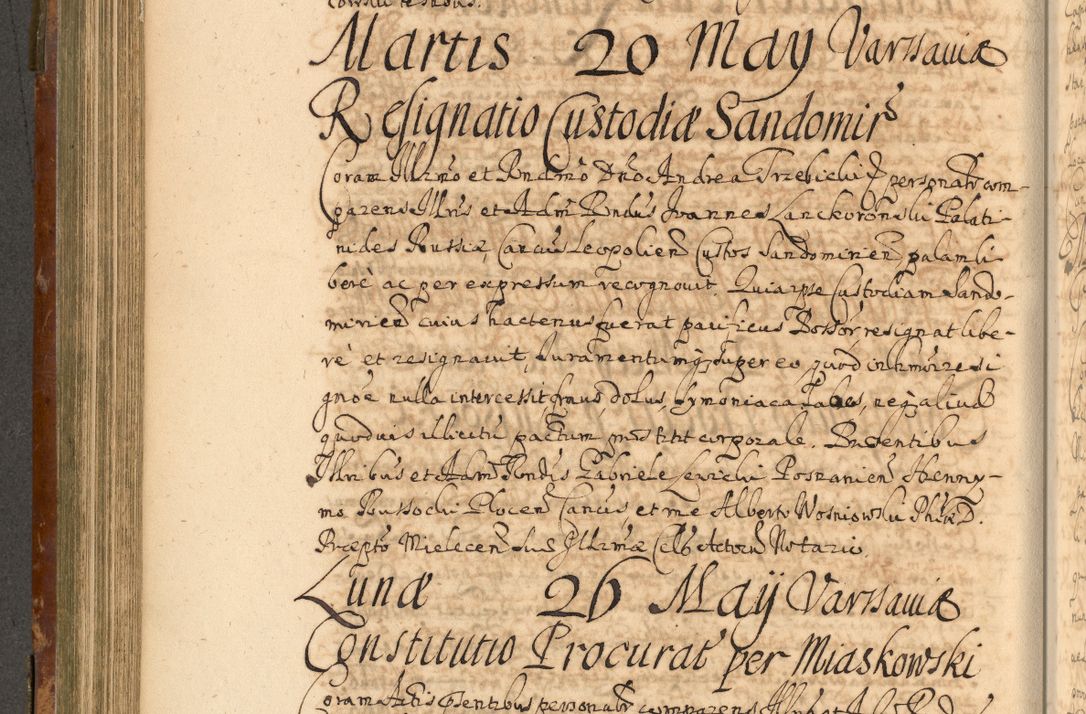 Martis 20 May Varssaviæ
Resignatio Custodiæ Sandomir
Coram Illrmo et Rndmo Dno Andrea Trzebicki personalr com-
parens Illris et Adm Rndus Joannes Lanckoronski Palati-
nides Russiæ, Cancus Leopolien Custos Sandomirien palam li
bere ac per expressum recognovit. Quia ipse Custodiam Sando-
mirien cuius hactenus fuerat pacificus Possor, resignat libe-
re et resignavit, Juramentumq super eo, quod in hmoi resi
gnoe nulla intercessit fraus, dolus, symoniaca labes, neq aliud
quodvis illicitu pactum corporale. Pntentibus
Illribus et Adm Rndis Gabriele Posnanien Hierony-
mo Plocen Cancis, et me Alberto Wosniowski Phiæ D.
Præpto Mielecen suæ Illrmæ Cels Actoru Notario.
Lunæ 26 Maij Varssaviæ
Constitutio Procurat per Miaskowski
Coram Actis psentibus personalr comparens